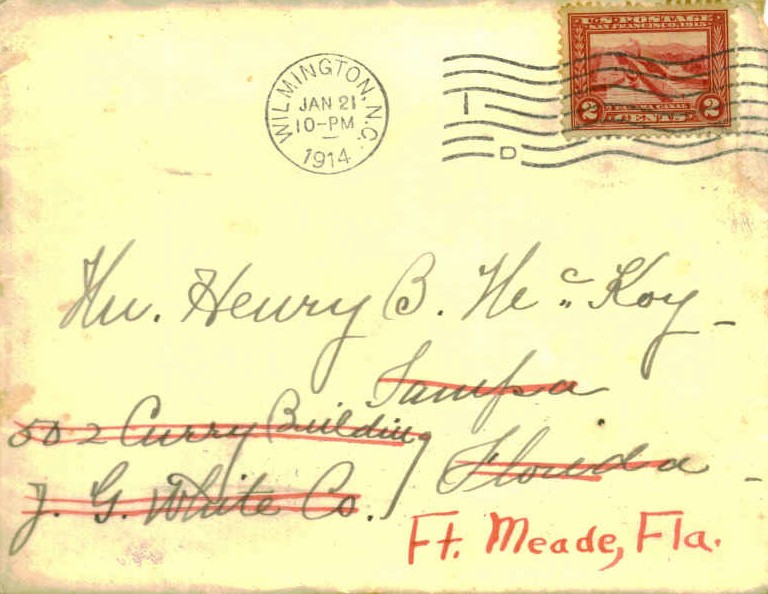 WILMINGTON, N.C.
JAN 21
10-PM
1914
I
D
U.S. POSTAGE
SAN FRANCISCO, 1915
2 PANAMA CANAL 2
CENTS
Mr. Henry B. McKoy -
Tampa
502 Curry Building
Florida -
J. G. White Co.
Ft. Meade, Fla.